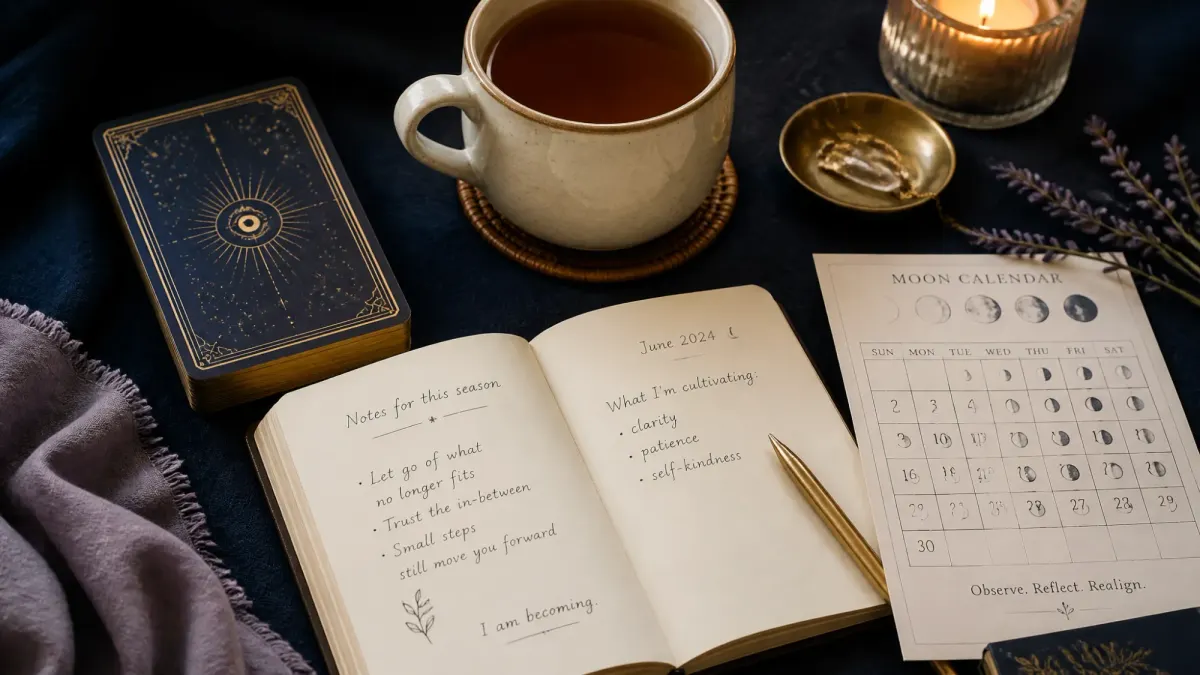 Notes for this season
• Let go of what
no longer fits
• Trust the in-between
• Small steps
still move you forward
I am becoming.
June 2024
What I'm cultivating:
• clarity
• patience
• self-kindness
MOON CALENDAR
SUN MON TUE WED THU FRI SAT
2 3 4
10
16
27 29
30
Observe. Reflect. Realign.